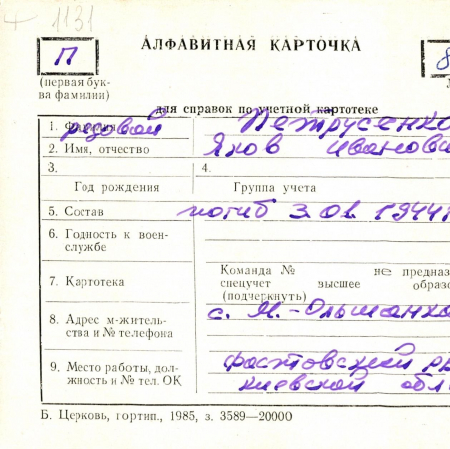 1131
П
АЛФАВИТНАЯ КАРТОЧКА
8
(первая бук-
ва фамилии)
для справок по учетной картотеке
1. Фамилия рядовой Петрусенко
2. Имя, отчество Яков Иванови
3. 4.
Год рождения Группа учета
5. Состав погиб 3.01.1944
6. Годность к воен-
службе
Команда № не предназ
7. Картотека спецучет высшее образо
(подчеркнуть)
8. Адрес м-житель- с. М.-Ольшанка
ства и № телефона
9. Место работы, дол- Фастовский р
жность и № тел. ОК Киевской обл
Б. Церковь, гортип., 1985, з. 3589—20000